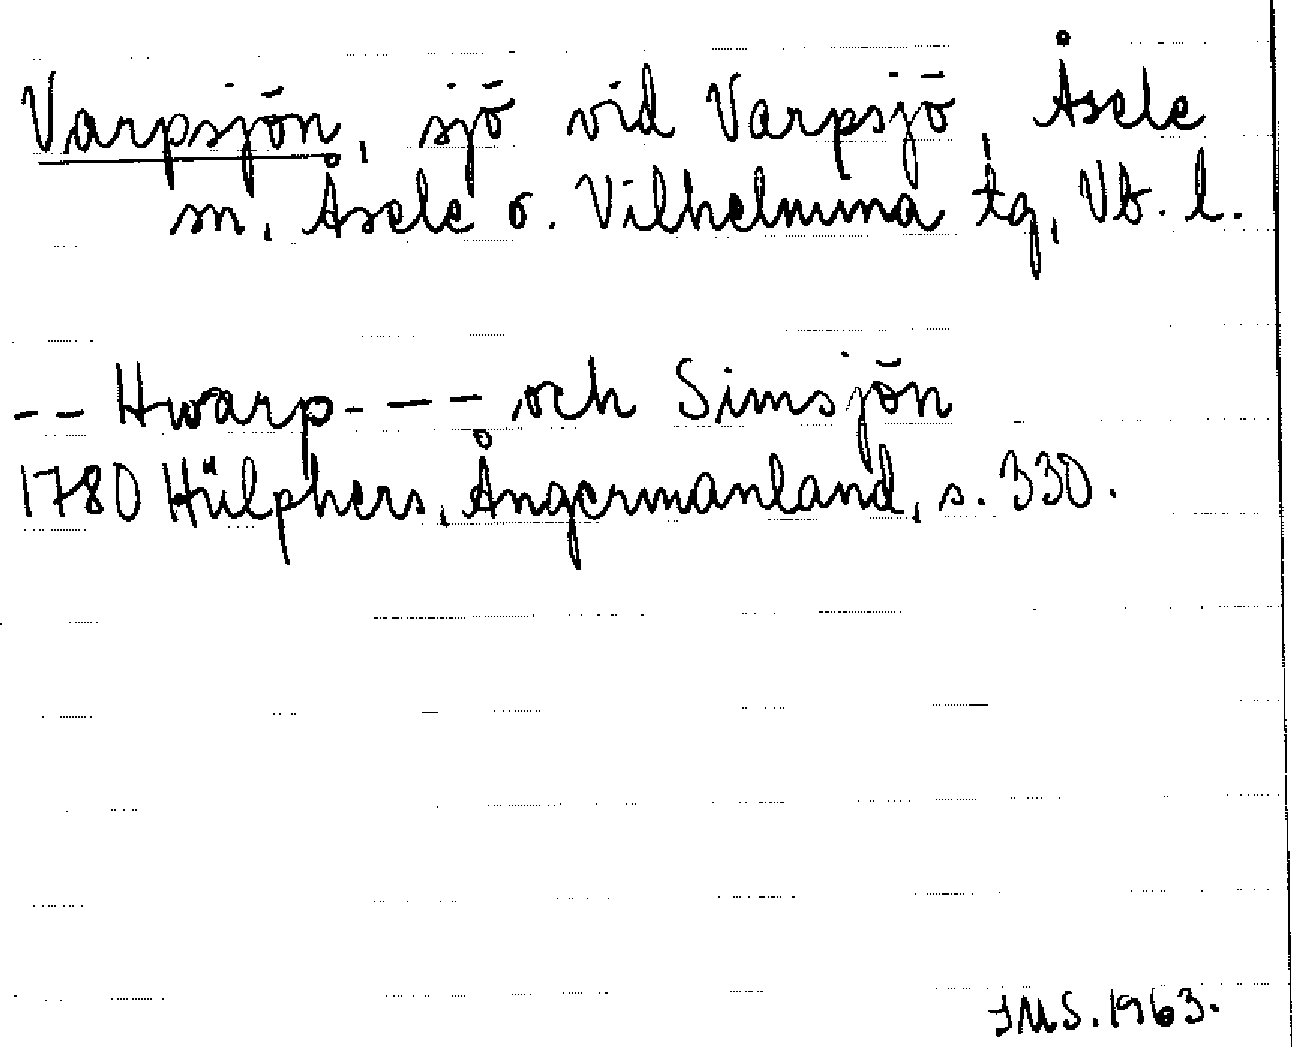 Varpsjön, sjö vid Varpsjö, Åsele
sn, Åsele o. Vilhelmina tg, Vb. l.
-- Hwarp- -- och Simsjön
1780 Hülphers, Ångermanland, s. 330.
IMS. 1963.